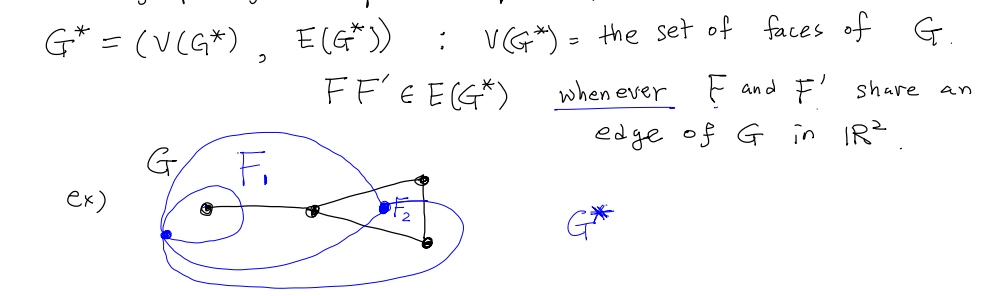 G* = (V(G*), E(G*)) : V(G*) = the set of faces of G.
FF' ∈ E(G*) whenever F and F' share an
edge of G in ℝ².
ex) G F₁ F₂ G*